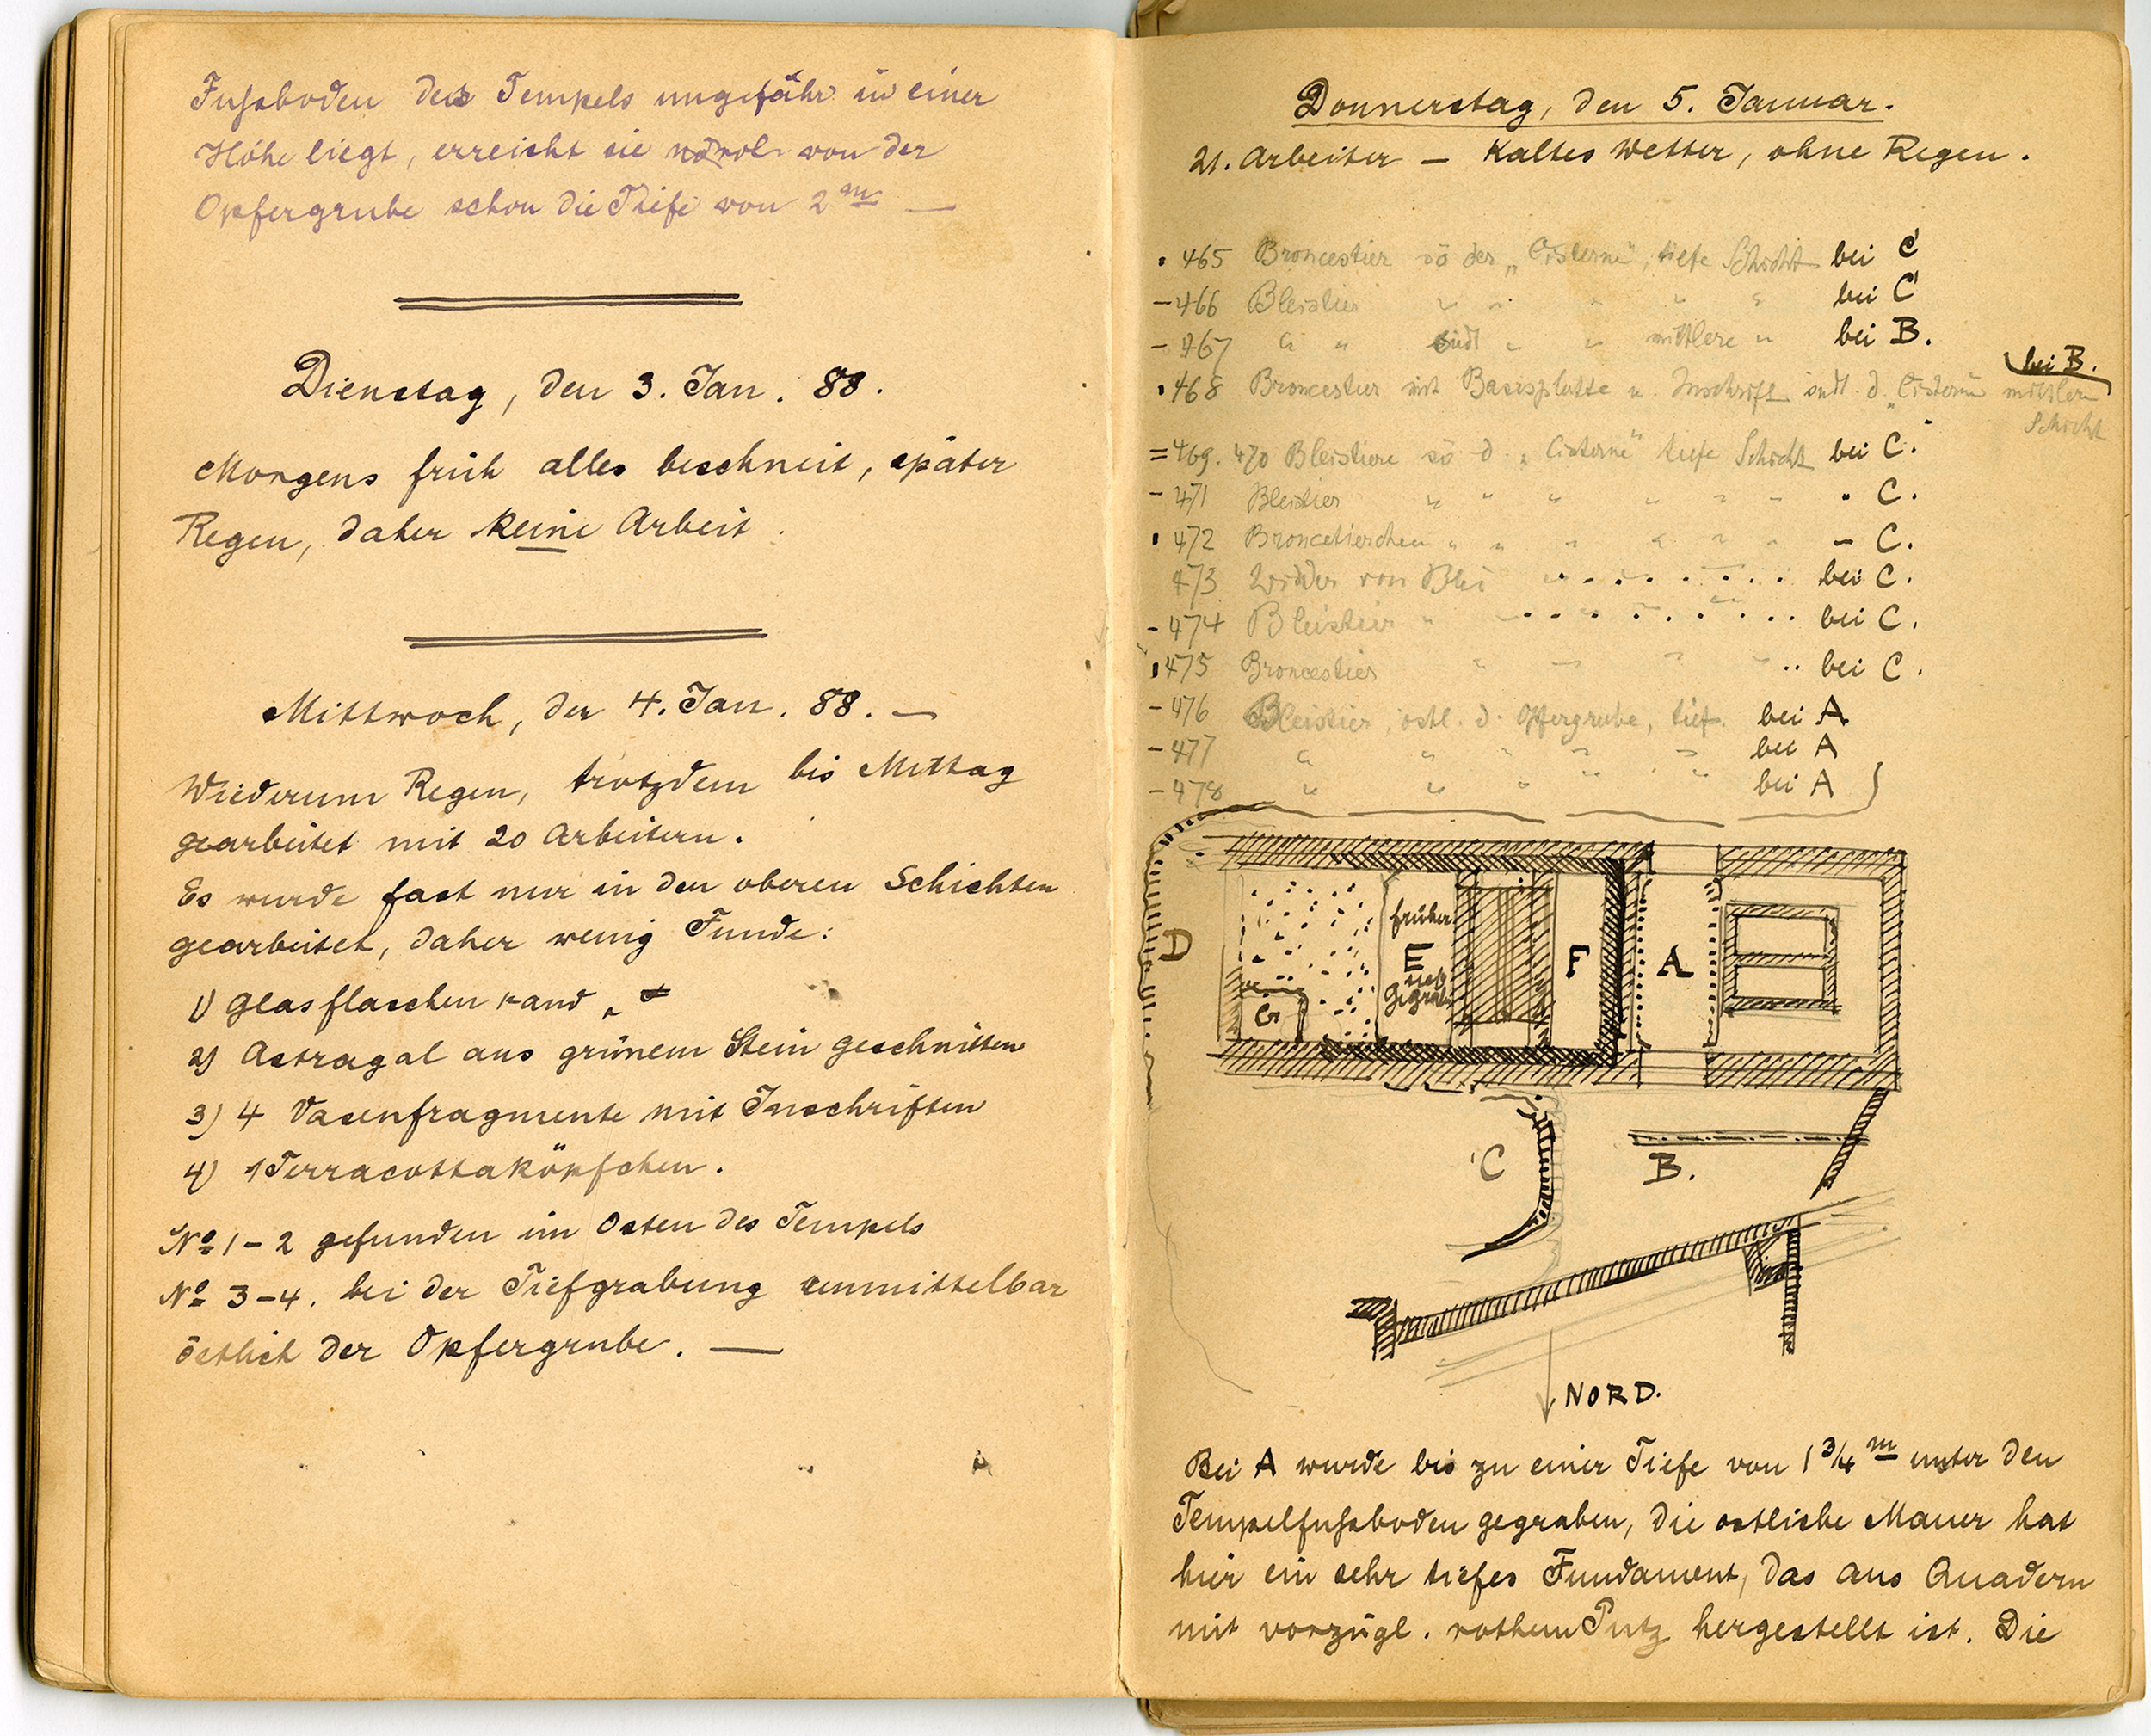 Fussboden des Tempels ungefähr in einer
Höhe liegt, erreicht sie nördl. von der
Opfergrube schon die Tiefe von 2 m —
Dienstag, den 3. Jan. 88.
Morgens früh alles beschneit, später
Regen, daher keine Arbeit.
Mittwoch, den 4. Jan. 88. —
Wiederum Regen, trotzdem bis Mittag
gearbeitet mit 20 Arbeitern.
Es wurde fast nur in den oberen Schichten
gearbeitet, daher wenig Funde:
1) Glasflaschenrand
2) Astragal aus grünem Stein geschnitten
3) 4 Vasenfragmente mit Inschriften
4) 1 Terracottaköpfchen.
No 1–2 gefunden im Osten des Tempels
No 3–4. bei der Tiefgrabung unmittelbar
östlich der Opfergrube. —
Donnerstag, den 5. Januar.
21. Arbeiter — Kaltes Wetter, ohne Regen.
· 465 Broncestier sö der „Cisterne", tiefe Schicht bei C
– 466 Bleistier " " " " " bei C
– 467 " " südl " " mittlere " bei B.
bei B.
· 468 Broncestier mit Basisplatte u. Inschrift südl. d. „Cisterne" mittlere
Schicht
= 469. 470 Bleistiere sö d. „Cisterne" tiefe Schicht bei C.
– 471 Bleistier " " " " " " " C.
· 472 Broncetierchen " " " " " " – C.
473 Widder von Blei " . . . . . . . bei C.
– 474 Bleistier " . . . . . . . . bei C.
· 475 Broncestier " " " " .. bei C.
– 476 Bleistier, östl. d. Opfergrube, tief. bei A
– 477 " " " " " bei A
– 478 " " " " " bei A
D
früher
E
F
A
gegraben
Gr
C
B.
NORD.
Bei A wurde bis zu einer Tiefe von 1 3/4 m unter den
Tempelfussboden gegraben, die östliche Mauer hat
hier ein sehr tiefes Fundament, das aus Quadern
mit vorzügl. rothem Putz hergestellt ist. Die